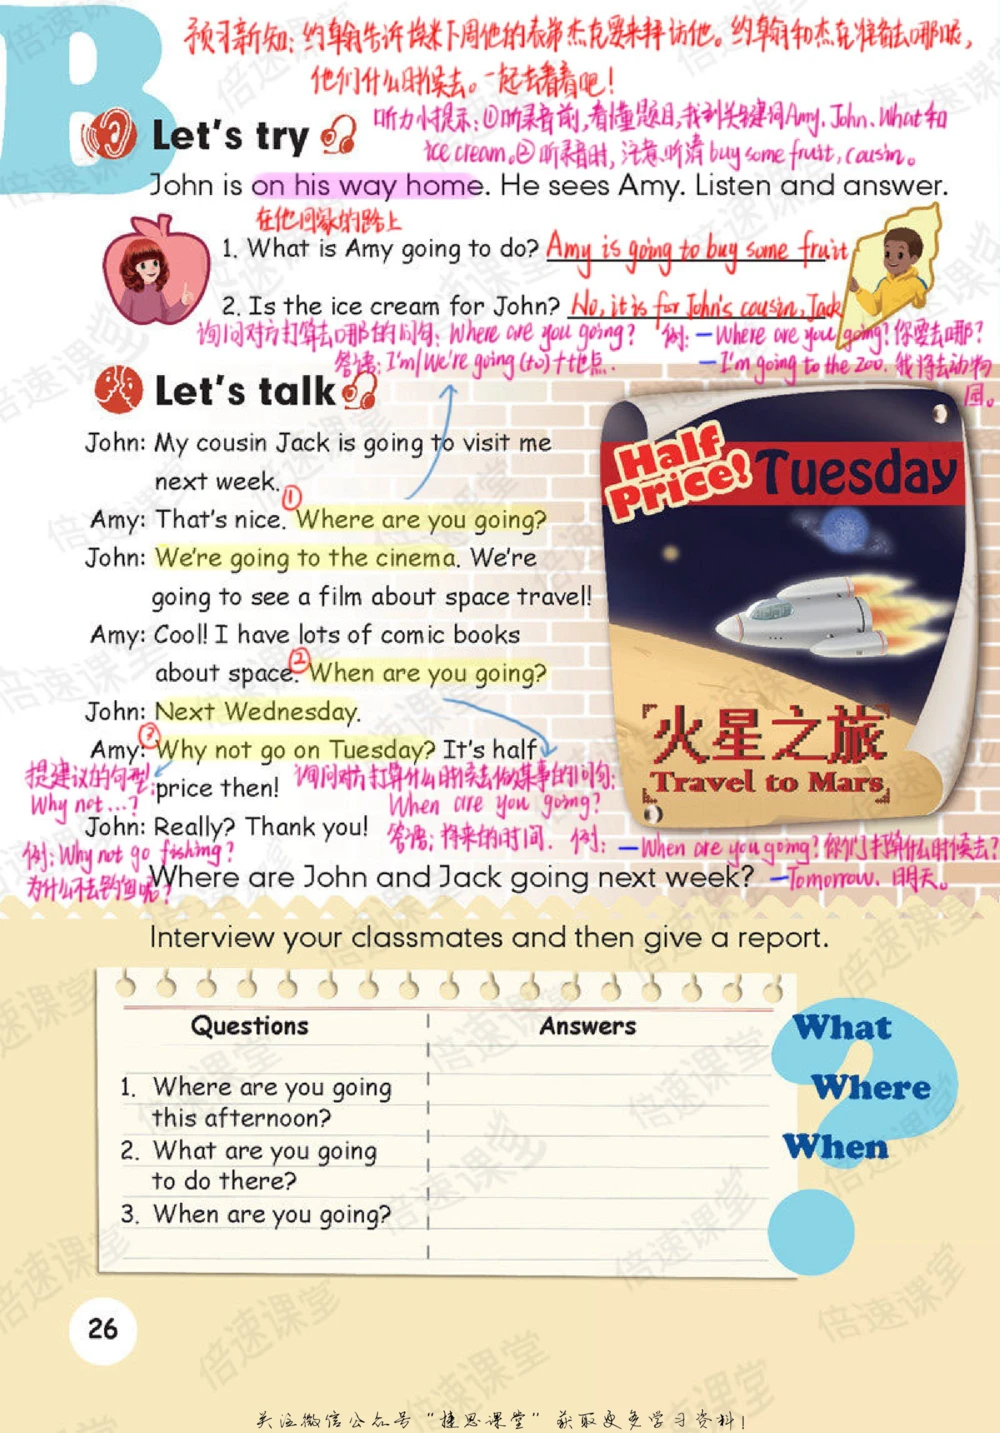 B
预习新知：约翰告诉埃米下周他的表弟杰克要来拜访他。约翰和杰克准备去哪呢，
他们什么时候去。一起去看看吧！
Let's try
听力小提示：①听录音前，看懂题目，找到关键词Amy、John、What和
ice cream。②听录音时，注意听清buy some fruit, cousin。
John is on his way home. He sees Amy. Listen and answer.
在他回家的路上
1. What is Amy going to do? Amy is going to buy some fruit
2. Is the ice cream for John? No, it is for John's cousin, Jack
询问对方打算去哪的问句：Where are you going? 例：—Where are you going? 你要去哪？
答语：I'm/We're going (to)+地点. —I'm going to the zoo. 我将去动物
园。
Let's talk
John: My cousin Jack is going to visit me
next week.
① Amy: That's nice. Where are you going?
John: We're going to the cinema. We're
going to see a film about space travel!
Amy: Cool! I have lots of comic books
about space. ② When are you going?
John: Next Wednesday.
Amy: ③ Why not go on Tuesday? It's half
price then!
John: Really? Thank you!
Half
Price!
Tuesday
火星之旅
Travel to Mars
提建议的句型：
Why not...?
例：Why not go fishing?
为什么不去钓鱼呢？
询问对方打算什么时候去做某事的问句：
When are you going?
答语：将来的时间. 例：—When are you going? 你们打算什么时候去？
—Tomorrow. 明天。
Where are John and Jack going next week?
Interview your classmates and then give a report.
Questions Answers
1. Where are you going
this afternoon?
2. What are you going
to do there?
3. When are you going?
What
Where
When
26
关注微信公众号“捷思课堂”获取更多学习资料！
倍速课堂